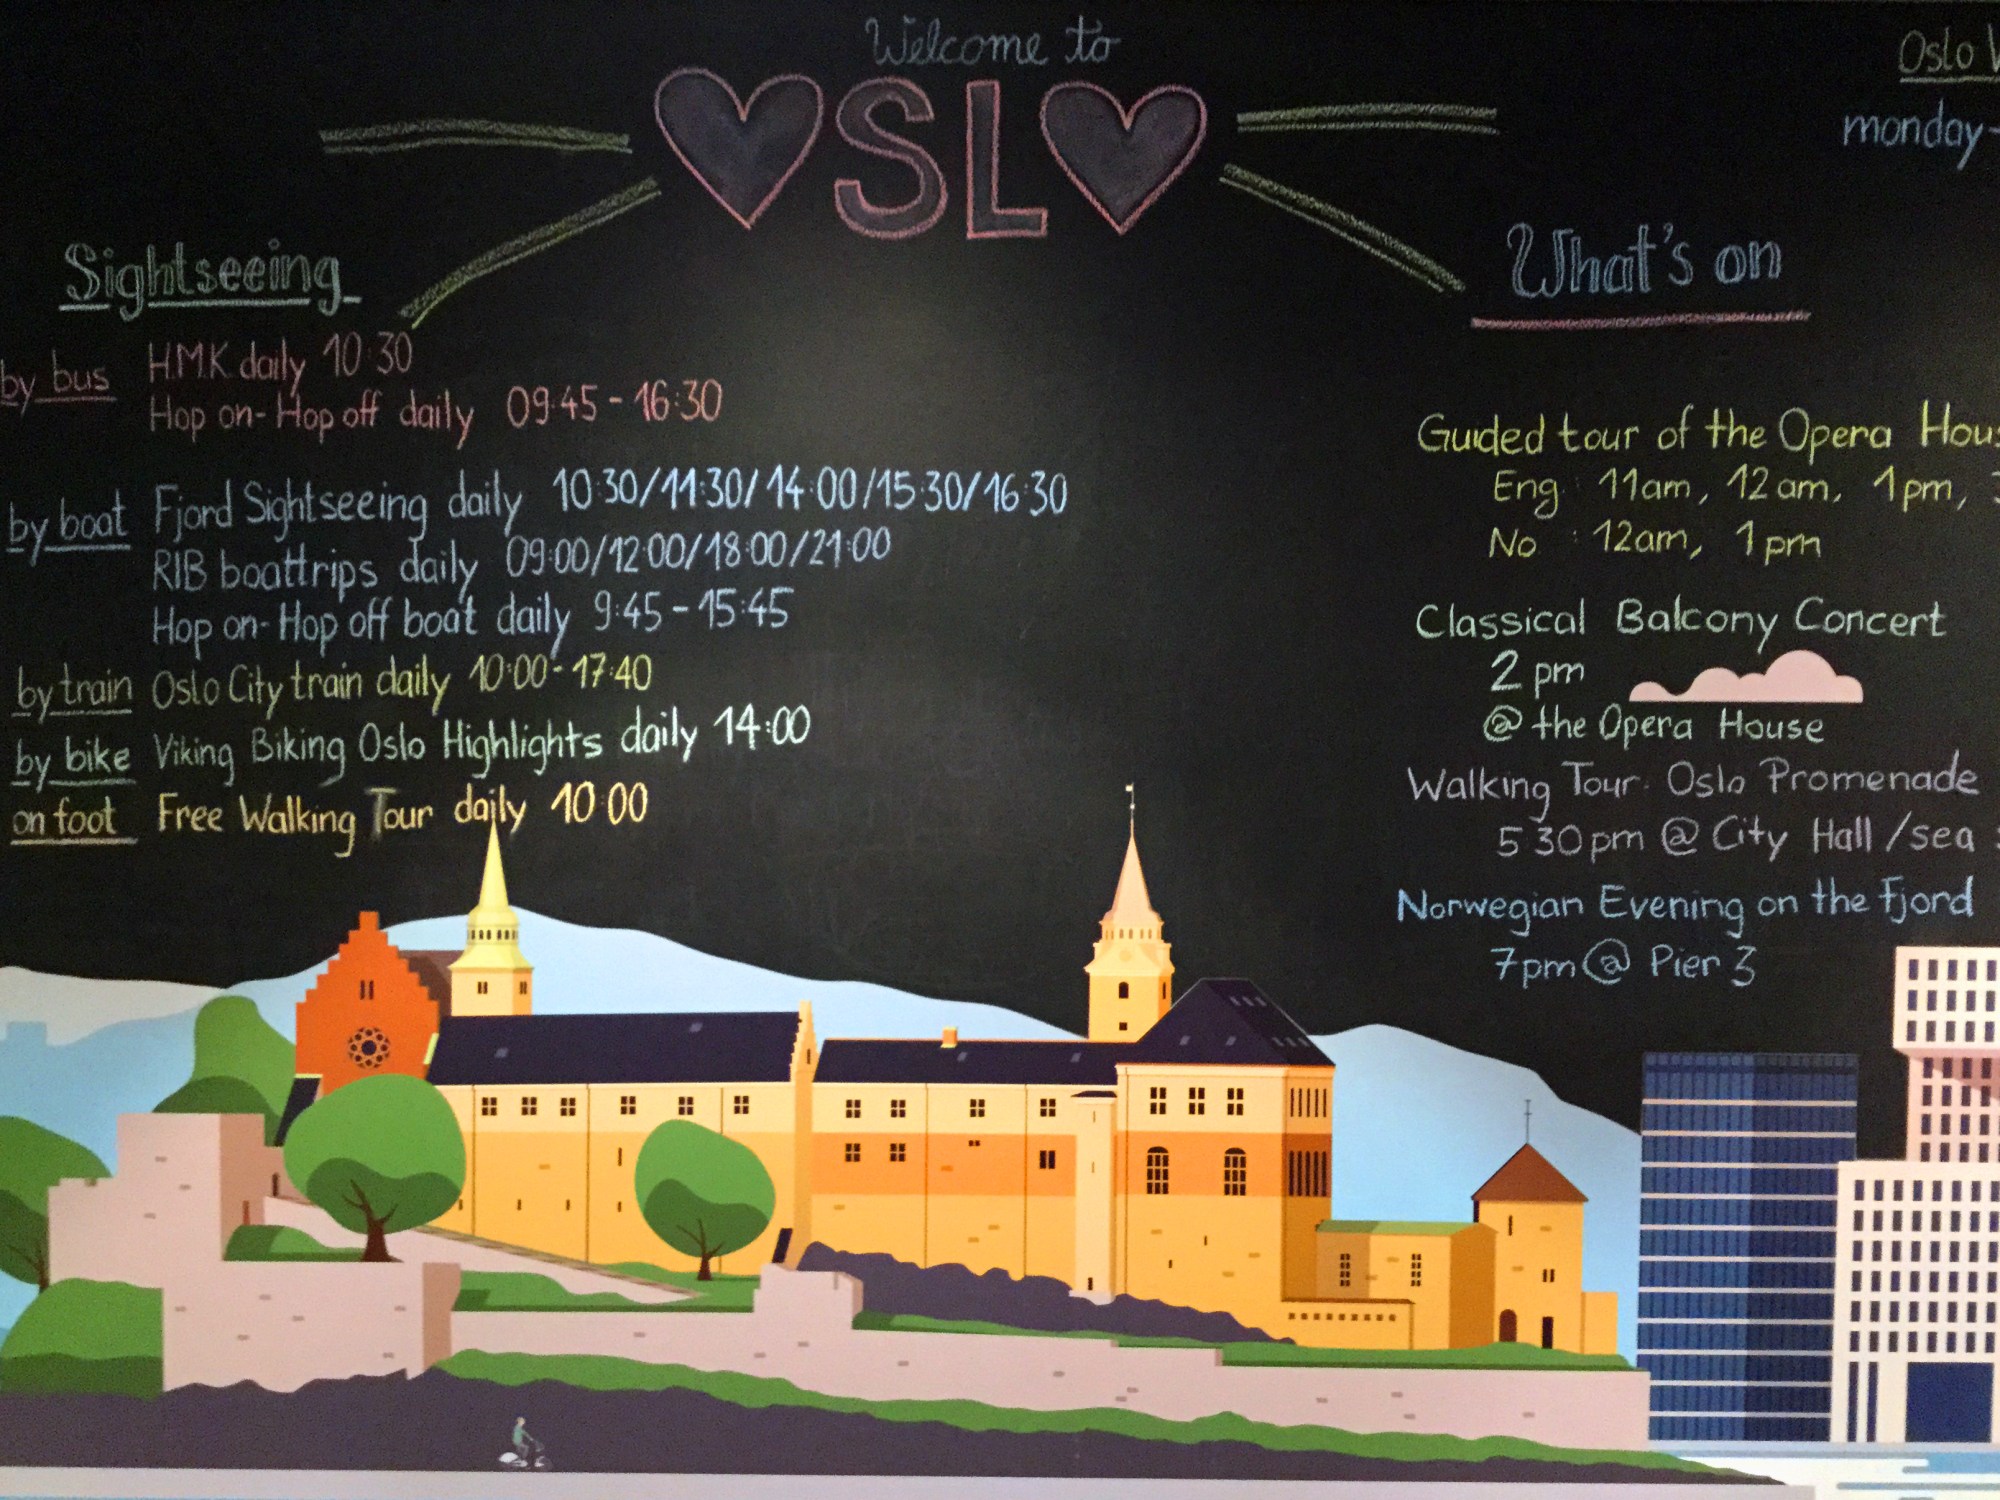 Welcome to
OSLO
Oslo
monday-
Sightseeing
by bus H.M.K. daily 10:30
Hop on-Hop off daily 09:45 - 16:30
by boat Fjord Sightseeing daily 10:30/11:30/14:00/15:30/16:30
RIB boattrips daily 09:00/12:00/18:00/21:00
Hop on-Hop off boat daily 9:45 - 15:45
by train Oslo City train daily 10:00 - 17:40
by bike Viking Biking Oslo Highlights daily 14:00
on foot Free Walking Tour daily 10:00
What's on
Guided tour of the Opera
Eng : 11am, 12am, 1pm,
No : 12am, 1pm
Classical Balcony Concert
2 pm
@ the Opera House
Walking Tour: Oslo Promenade
5:30pm @ City Hall /sea
Norwegian Evening on the fjord
7pm @ Pier 3